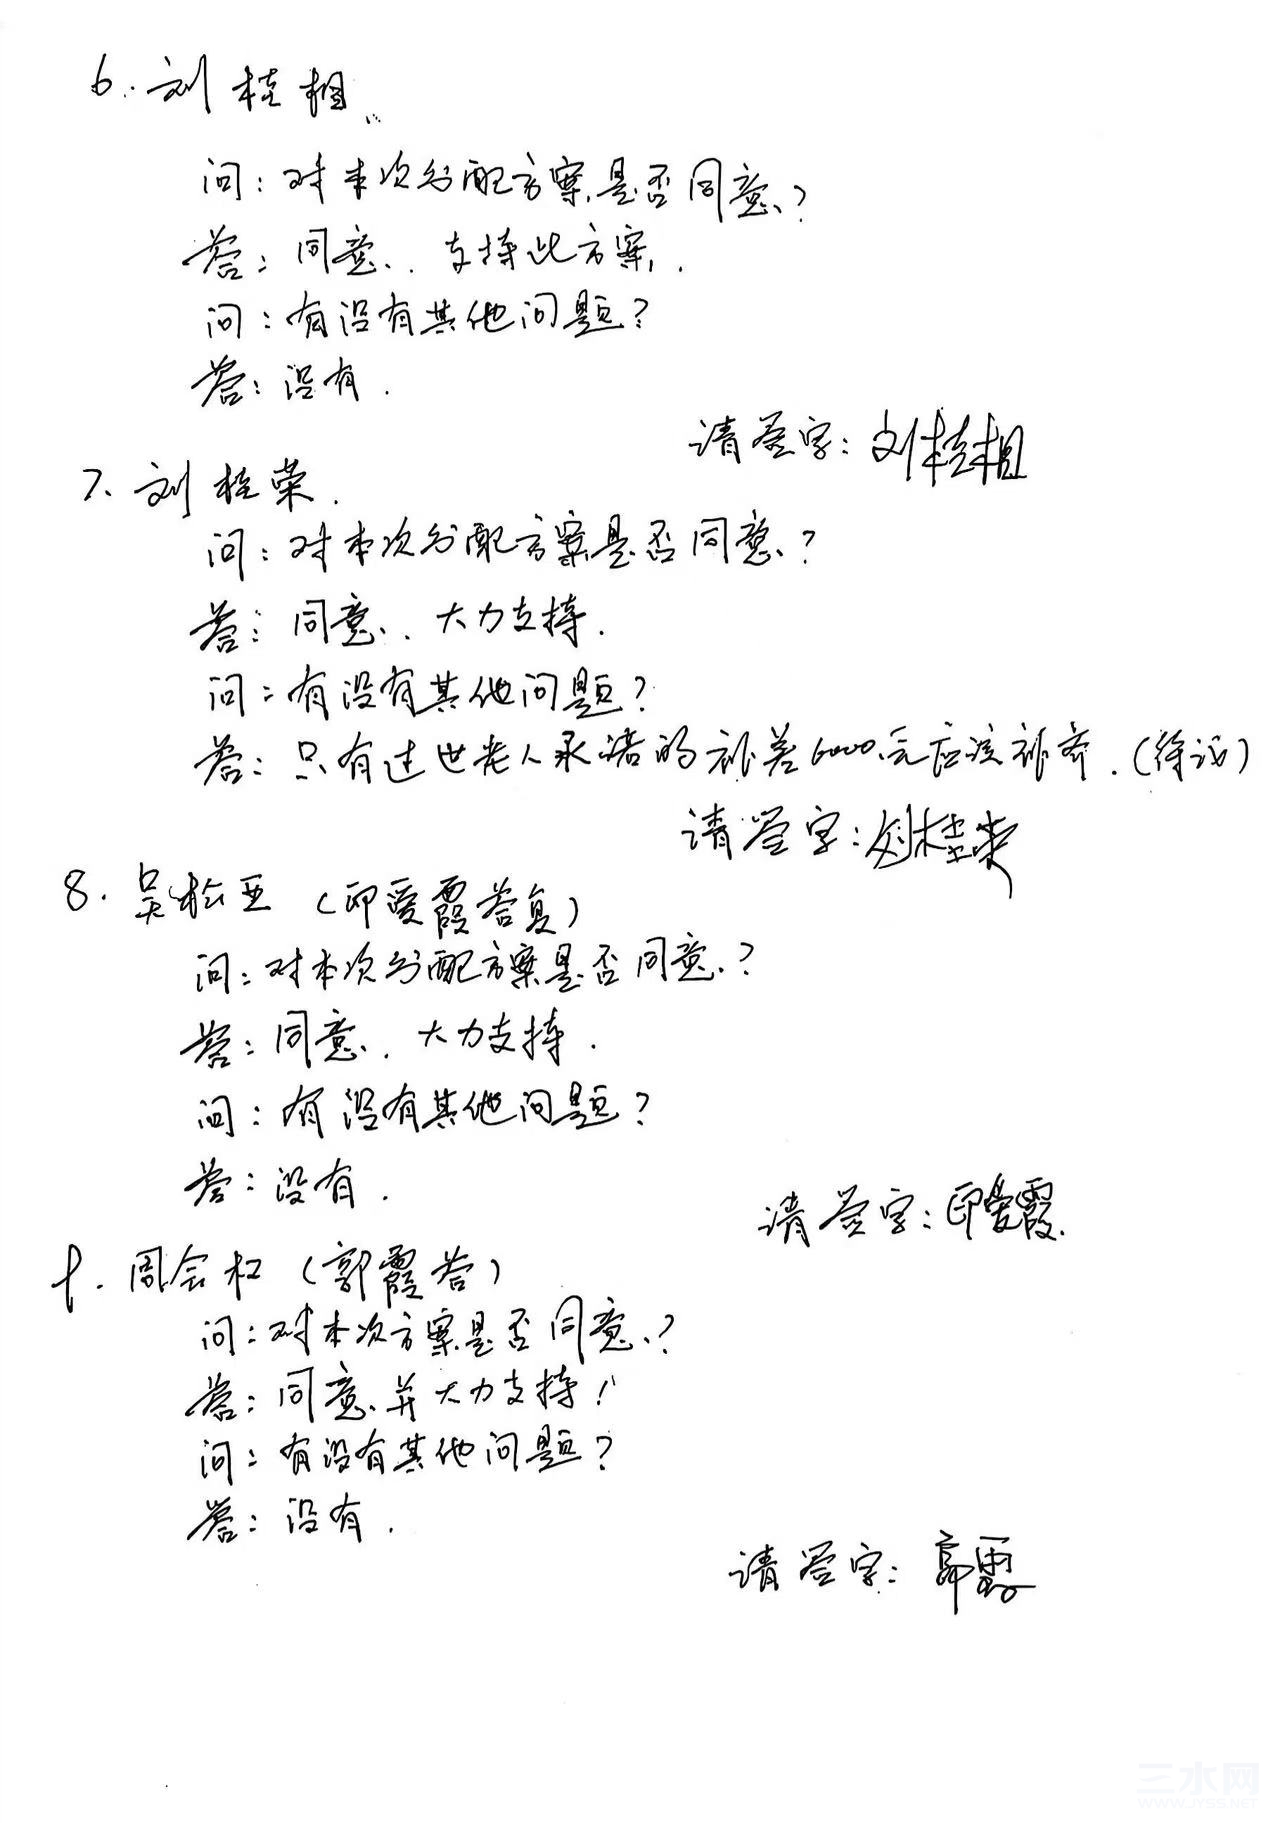 6. 刘桂相
问：对本次分配方案是否同意？
答：同意．支持此方案．
问：有没有其他问题？
答：没有．
请签字：刘桂相
7. 刘桂荣．
问：对本次分配方案是否同意？
答：同意．大力支持．
问：有没有其他问题？
答：只有过世老人承诺的补差6000元应该补齐．（待议）
请签字：刘桂荣
8. 吴松亚（印爱霞答复）
问：对本次分配方案是否同意？
答：同意．大力支持．
问：有没有其他问题？
答：没有．
请签字：印爱霞．
周会权（郭霞答）
问：对本次方案是否同意？
答：同意并大力支持！
问：有没有其他问题？
答：没有．
请签字：郭霞
三水网
WWW.JYSS.NET